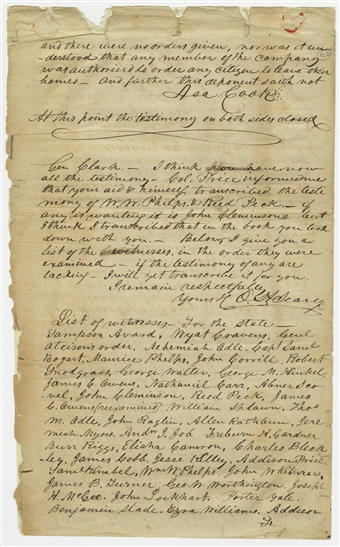 and there were no orders given, nor was it un-
derstood that any member of the company
was authorized to order any citizen to leave their
homes - And further this deponent saith not
Asa Cook
At this point the testimony on both sides closed
Gen Clark. - I think you have now
all the testimony. Col. Price informed me
that your aid & himself transcribed the testi
mony of W. W. Phelps, & Reed Peck - if
any is wanting it is John Clemensons but
I think I transcribed that in the book you took
down with you. - Below I give you a
list of the witnesses, in the order they were
examined - if the testimony of any are
lacking - I will yet transcribe it for you
I remain respectfully
Yours &c
List of witnesses - For the State
Sampson Avard, Wyat Cravens, Genl
Atcisons order, Nehemiah Odle, Capt Saml
Bogart, Maurice Phelps, John Corrill, Robert
Snodgrass, George Walter, George M. Hinkel
James C. Owens, Nathaniel Carr, Abner Sco-
vel, John Clemenson, Reed Peck, James
C. Owens (reexamined) William Splawn, Thos
M. Odle, John Raglin, Allen Rathbun, Jere
miah Myers, Andw J. Job Freburn H. Gardner
Burr Riggs, Elisha Camron, Charles Bleck
ley, James Cobb, Jesse Kelley, Addison Price
Saml Kimbel, Wm W Phelps, John Whitmer,
James B. Turner, Geo. W. Worthington, Joseph
H. McGee. John Lockhart. Porter Yale.
Benjamin Slade. Ezra Williams. Addison
F.